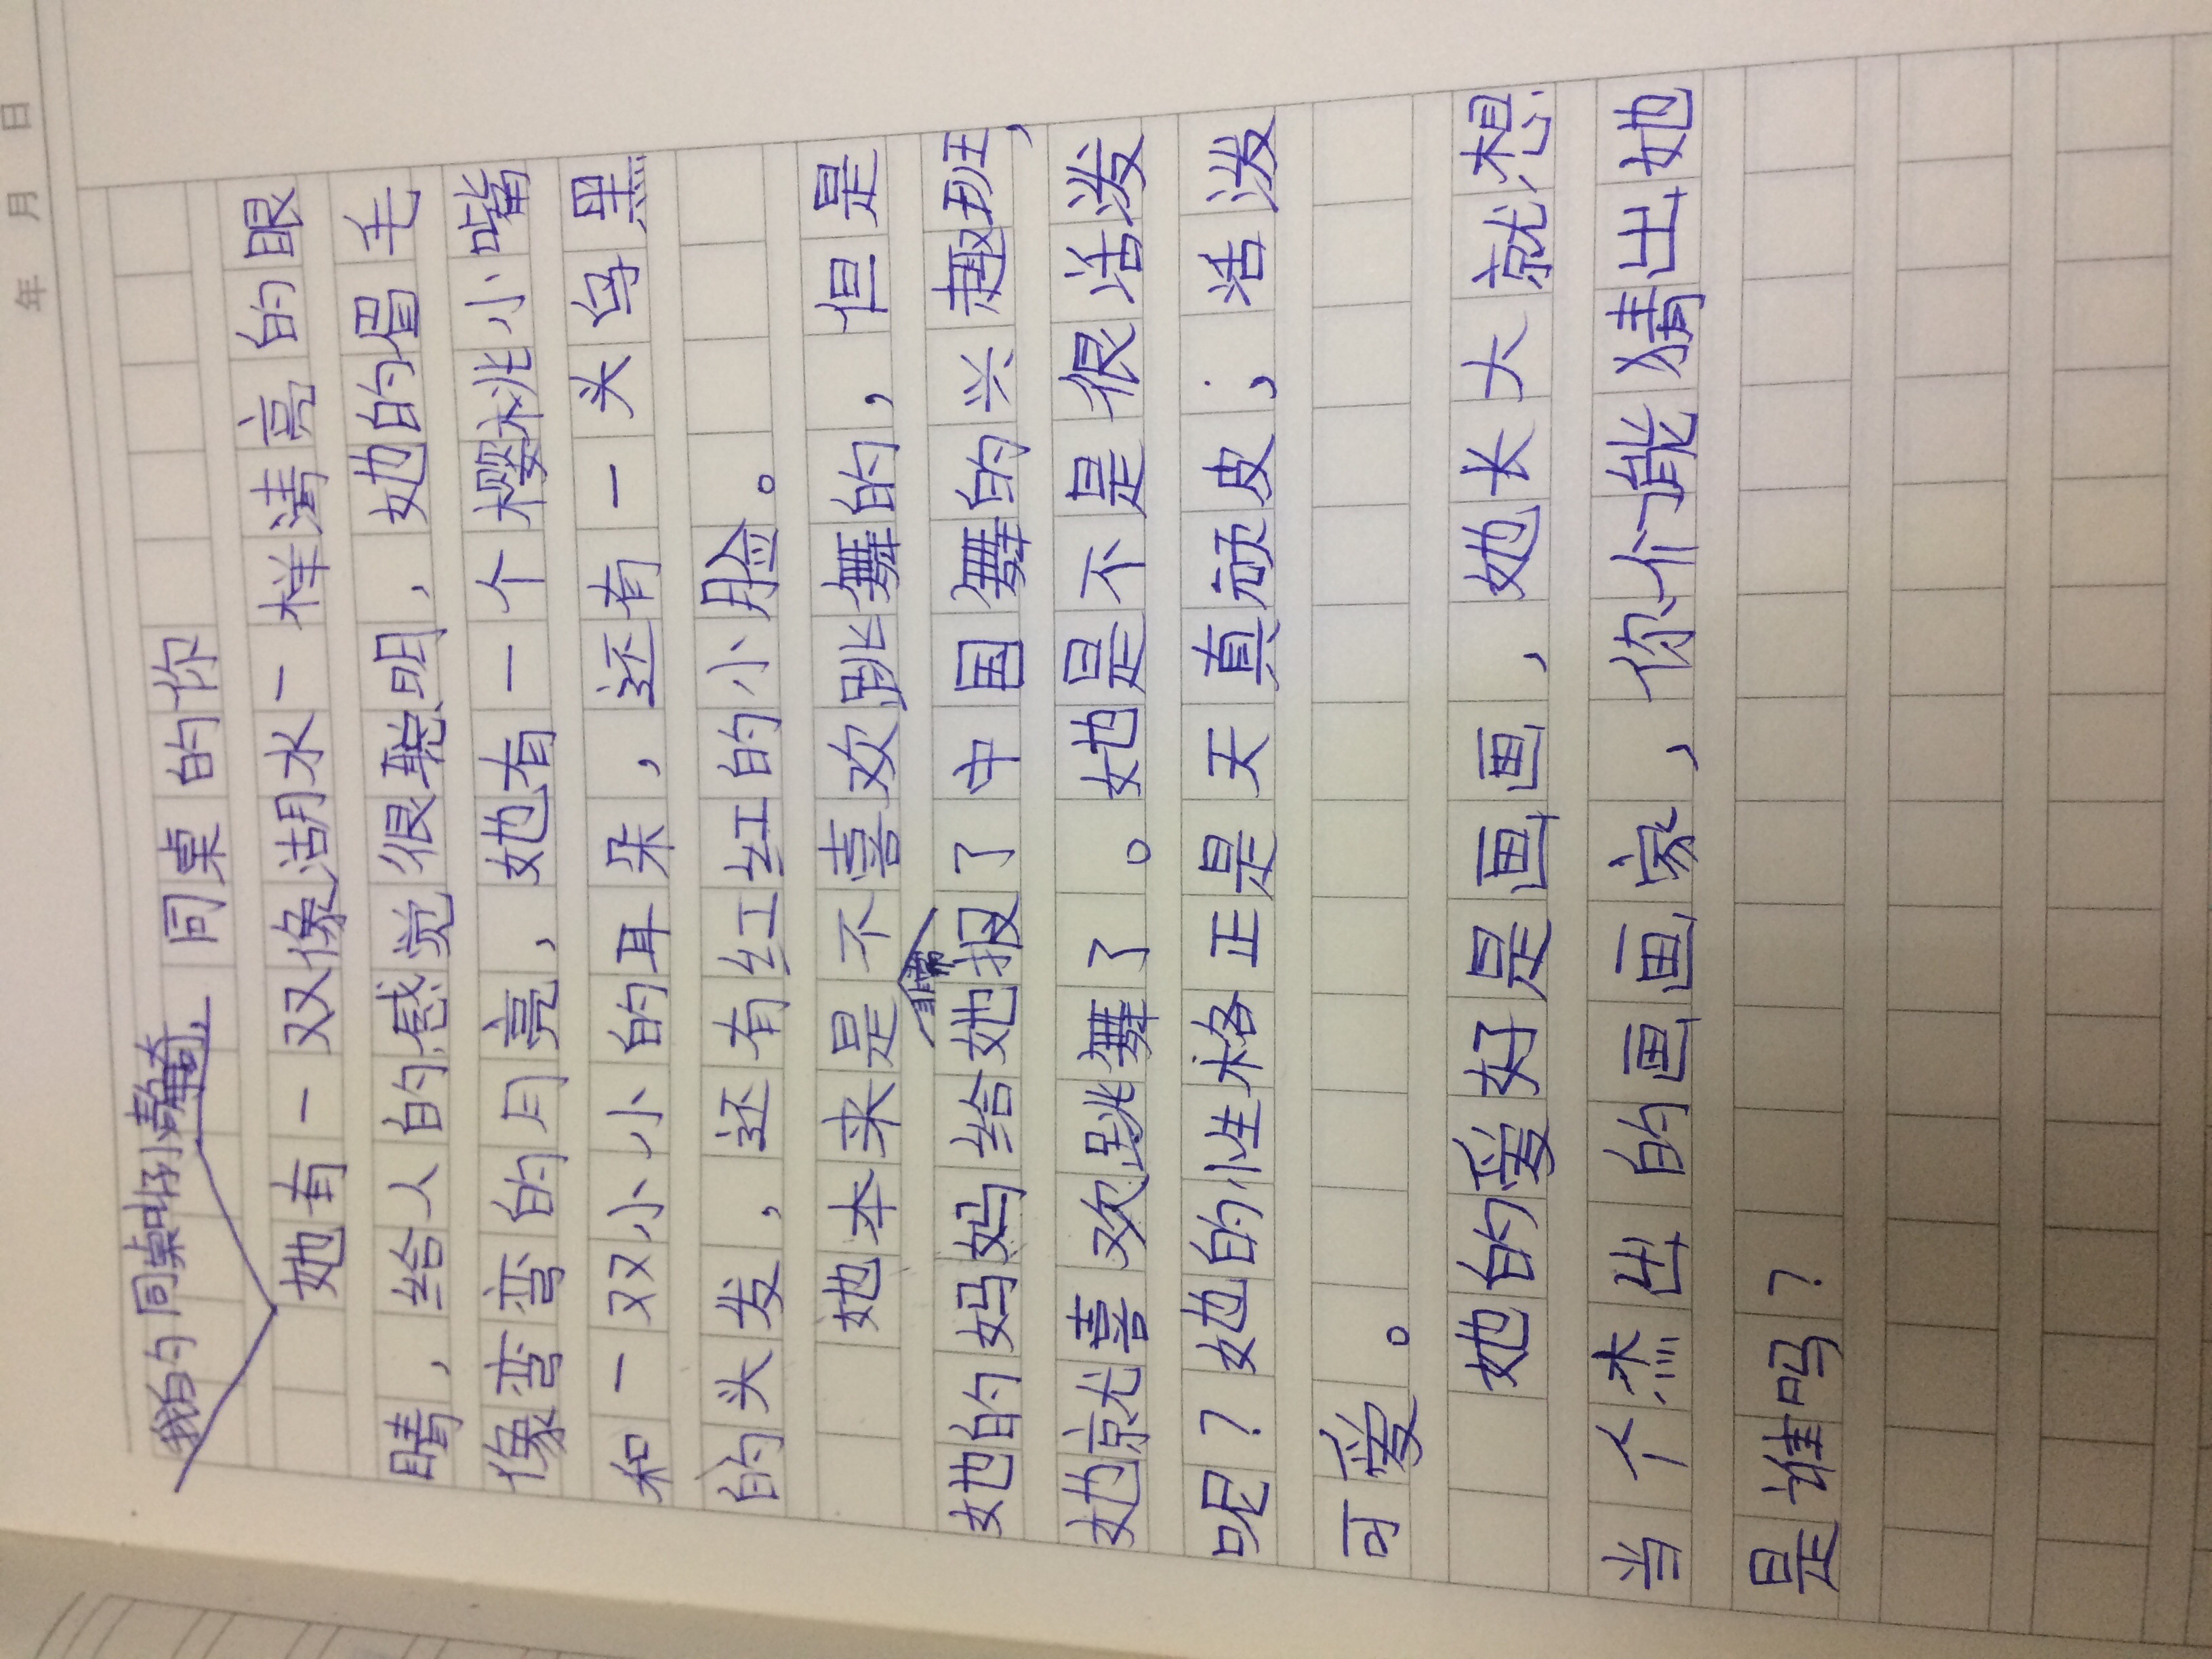 年 月 日
同桌的你
我的同桌叫
她有一双像湖水一样清亮的眼
睛，给人的感觉很聪明，她的眉毛
像弯弯的月亮，她有一个樱桃小嘴
和一双小小的耳朵，还有一头乌黑
的头发，还有红红的小脸。
她本来是不喜欢跳舞的，但是
她的妈妈给她报了中国舞的兴趣班，
非常
她就喜欢跳舞了。她是不是很活泼
呢？她的性格正是天真顽皮；活泼
可爱。
她的爱好是画画，她长大就想
当个杰出的画画家，你们能猜出她
是谁吗？